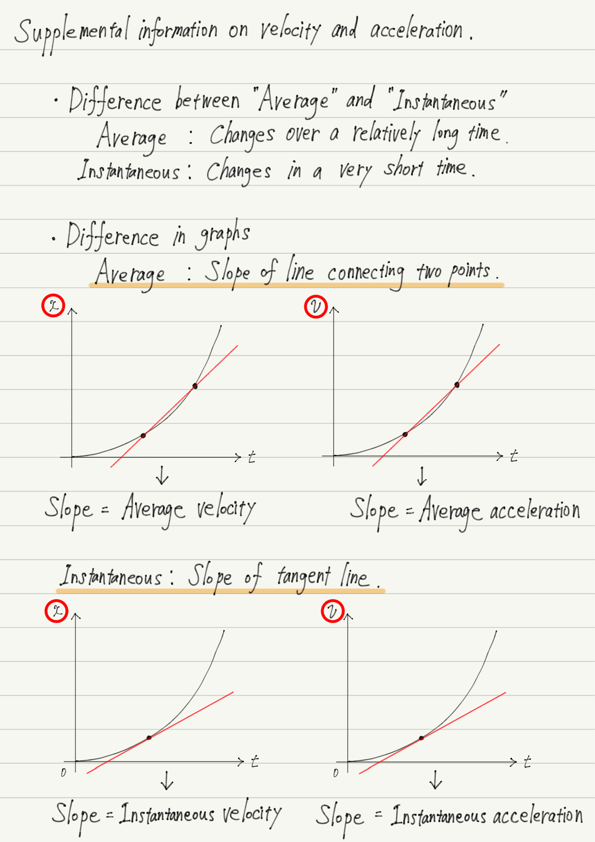 Supplemental information on velocity and acceleration.
・Difference between "Average" and "Instantaneous"
Average : Changes over a relatively long time.
Instantaneous : Changes in a very short time.
・Difference in graphs
Average : Slope of line connecting two points.
x
v
t
t
↓
↓
Slope = Average velocity
Slope = Average acceleration
Instantaneous : Slope of tangent line.
x
v
0
t
0
t
↓
↓
Slope = Instantaneous velocity
Slope = Instantaneous acceleration